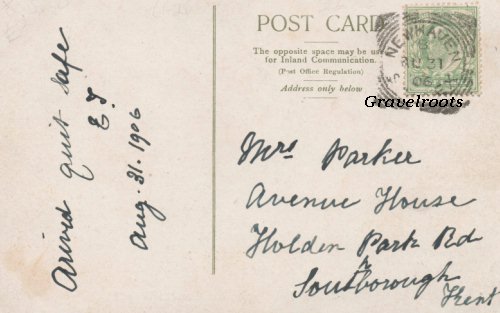 POST CARD
The opposite space may be used
for Inland Communication.
(Post Office Regulation)
Address only below
NEWHAVEN
AU 31
06
Gravelroots
Arived quit safe
E J
Aug. 31. 1906
Mrs Parker
Avenue House
Holden Park Rd
Southborough
Kent